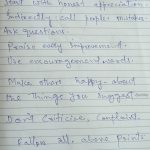 Start with honest appreciation.
Indirectly call people mistakes.
Ask questions.
Praise every improvement.
Use encouragement words.
Make others happy about
the things you suggest
Don't criticise, condemn
Follow all above points